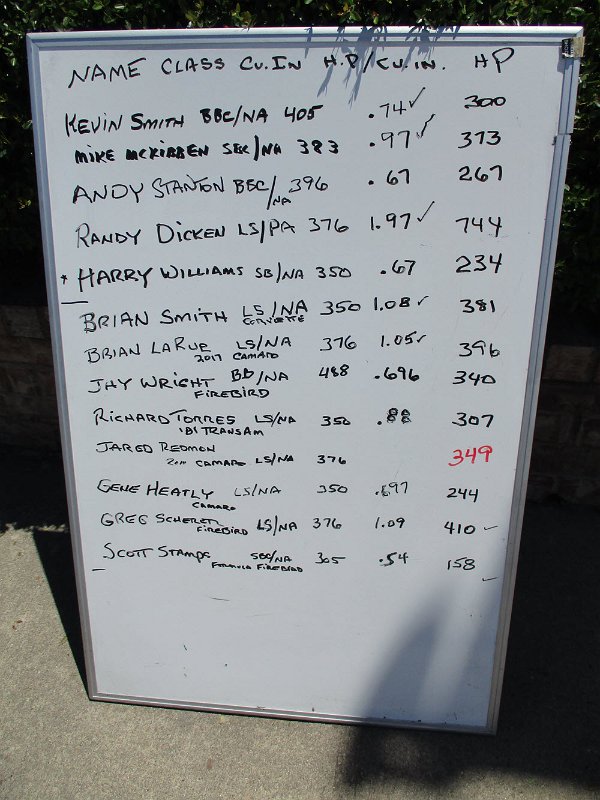 NAME CLASS CU.IN H.P/CU.IN. HP
KEVIN SMITH BBC/NA 405 .74✓ 300
MIKE MCKIBBEN SBC/NA 383 .97✓ 373
ANDY STANTON BBC/NA 396 .67 267
RANDY DICKEN LS/PA 376 1.97✓ 744
* HARRY WILLIAMS SB/NA 350 .67 234
BRIAN SMITH LS/NA 350 1.08✓ 381
CORVETTE
BRIAN LARUE LS/NA 376 1.05✓ 396
2017 CAMARO
JAY WRIGHT BB/NA 488 .696 340
FIREBIRD
RICHARD TORRES LS/NA 350 .88 307
'81 TRANSAM
JARED REDMON 349
CAMARO LS/NA 376
GENE HEATLY LS/NA 350 .697 244
CAMARO
GREG LS/NA 376 1.09 410 ✓
FIREBIRD
SCOTT STAMPS SBC/NA 305 .54 158 ✓
FORMULA FIREBIRD